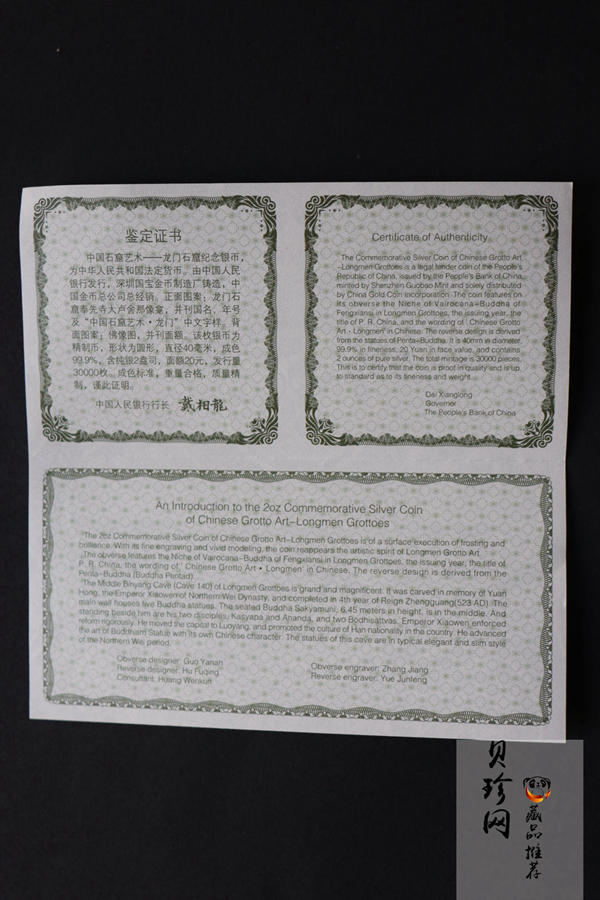 鉴定证书
中国石窟艺术——龙门石窟纪念银币,
为中华人民共和国法定货币。由中国人民
银行发行，深圳国宝金币制造厂铸造，中
国金币总公司总经销。正面图案：龙门石
窟奉先寺大卢舍那像龛，并刊国名、年号
及“中国石窟艺术·龙门”中文字样。背
面图案：佛像图，并刊面额。该枚银币为
精制币，形状为圆形，直径40毫米，成色
99.9%，含纯银2盎司，面额20元，发行量
30000枚。成色标准，重量合格，质量精
制，谨此证明。
中国人民银行行长 戴相龍
Certificate of Authenticity
The Commemorative Silver Coin of Chinese Grotto Art
–Longmen Grottoes is a legal tender coin of the People's
Republic of China, issued by the People's Bank of China,
minted by Shenzhen Guobao Mint and solely distributed
by China Gold Coin Incorporation. The coin features on
its obverse the Niche of Vairocana–Buddha of
Fengxiansi in Longmen Grottoes, the issuing year, the
title of P. R. China, and the wording of ' Chinese Grotto
Art · Longmen' in Chinese. The reverse design is derived
from the statues of Penta–Buddha. It is 40mm in diameter,
99.9% in fineness, 20 Yuan in face value, and contains
2 ounces of pure silver. The total mintage is 30000 pieces.
This is to certify that the coin is proof in quality and is up
to standard as to its fineness and weight.
Dai Xianglong
Governor
The People's Bank of China
An Introduction to the 2oz Commemorative Silver Coin
of Chinese Grotto Art–Longmen Grottoes
The 2oz Commemorative Silver Coin of Chinese Grotto Art–Longmen Grottoes is of a surface execution of frosting and
brilliance. With its fine engraving and vivid modeling, the coin reappears the artistic spirit of Longmen Grotto Art.
The obverse features the Niche of Vairocana–Buddha of Fengxiansi in Longmen Grottoes, the issuing year, the title of
P. R. China, the wording of ' Chinese Grotto Art • Longmen' in Chinese. The reverse design is derived from the
Penta–Buddha (Buddha Pentad).
The Middle Binyang Cave (Cave 140) of Longmen Grottoes is grand and magnificent. It was carved in memory of Yuan
Hong, the Emperor Xiaowen of Northern Wei Dynasty, and completed in 4th year of Reign Zhengguang(523 AD). The
main wall houses five Buddha statues. The seated Buddha Sakyamuni, 6.45 meters in height, is in the middle. And
standing beside him are his two disciples, Kasyapa and Ananda, and two Bodhisattvas. Emperor Xiaowen enforced
reform rigorously. He moved the capital to Luoyang, and promoted the culture of Han nationality in the country. He advanced
the art of Buddhism Statue with its own Chinese character. The statues of this cave are in typical elegant and slim style
of the Northern Wei period.
Obverse designer: Guo Yanan
Reverse designer: Hu Fuqing
Consultant: Huang Wenkun
Obverse engraver: Zhang Jiang
Reverse engraver: Yue Junfeng
贝珍网
藏品推荐